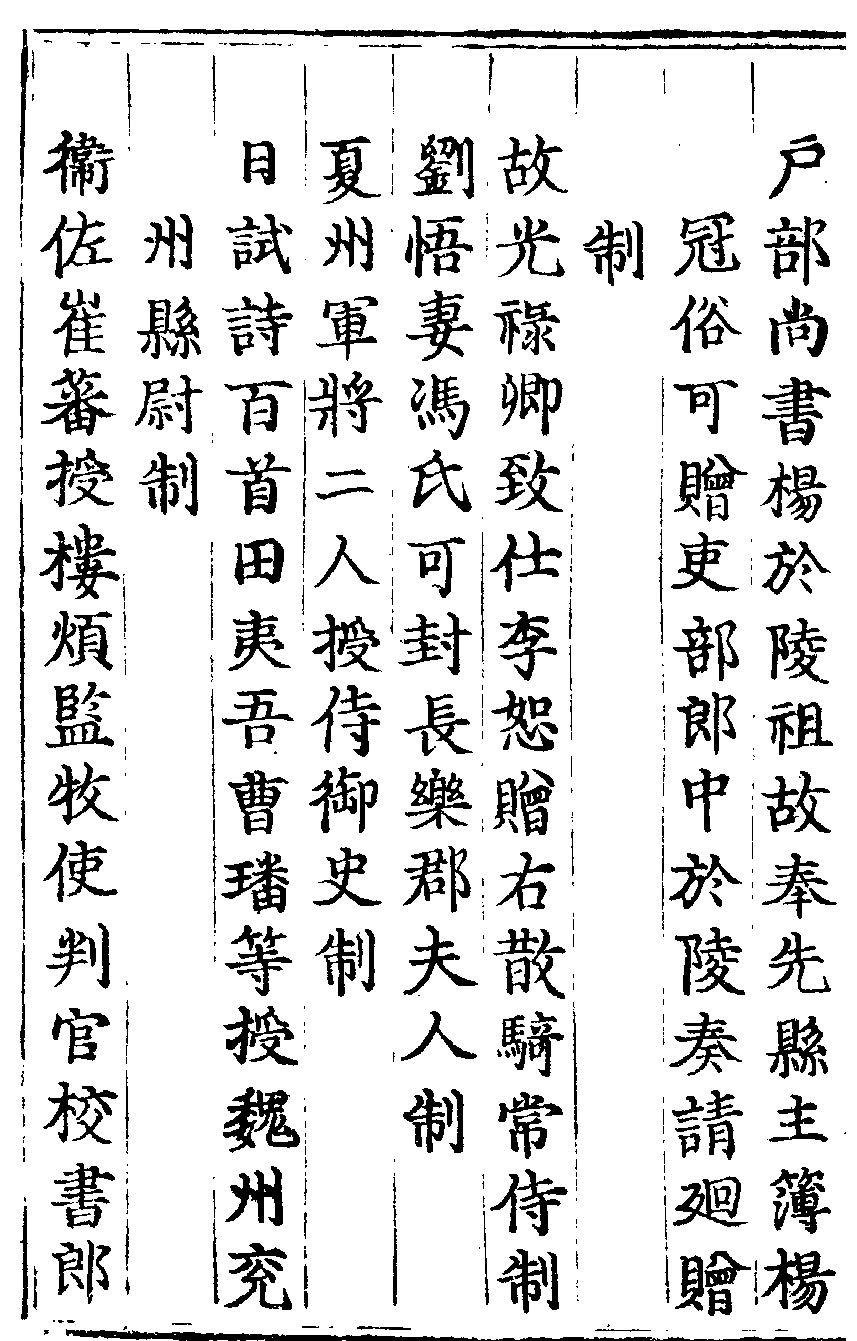 戶部尚書楊於陵祖故奉先縣主簿楊
冠俗可贈吏部郎中於陵奏請廻贈
制
故光祿卿致仕李恕贈右散騎常侍制
劉悟妻馮氏可封長樂郡夫人制
夏州軍將二人授侍御史制
日試詩百首田夷吾曹璠等授魏州兖
州縣尉制
衛佐崔蕃授樓煩監牧使判官校書郎